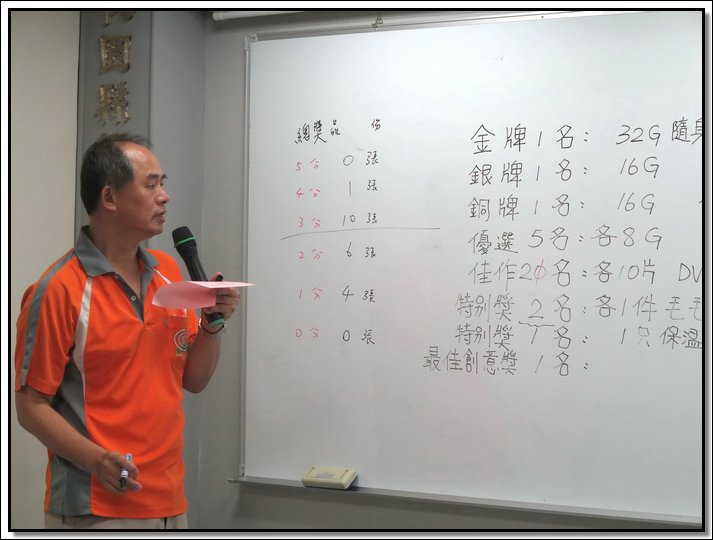 園縣
總獎品 份
5分 0張
4分 1張
3分 10張
2分 6張
1分 4張
0分 0張
金牌1名: 32G 隨身
銀牌1名: 16G
銅牌1名: 16G
優選5名: 各8G
佳作20名: 各10片 DV
特別獎 2名: 各1件毛毛
特別獎 1名: 1只保溫
最佳創意獎 1名: